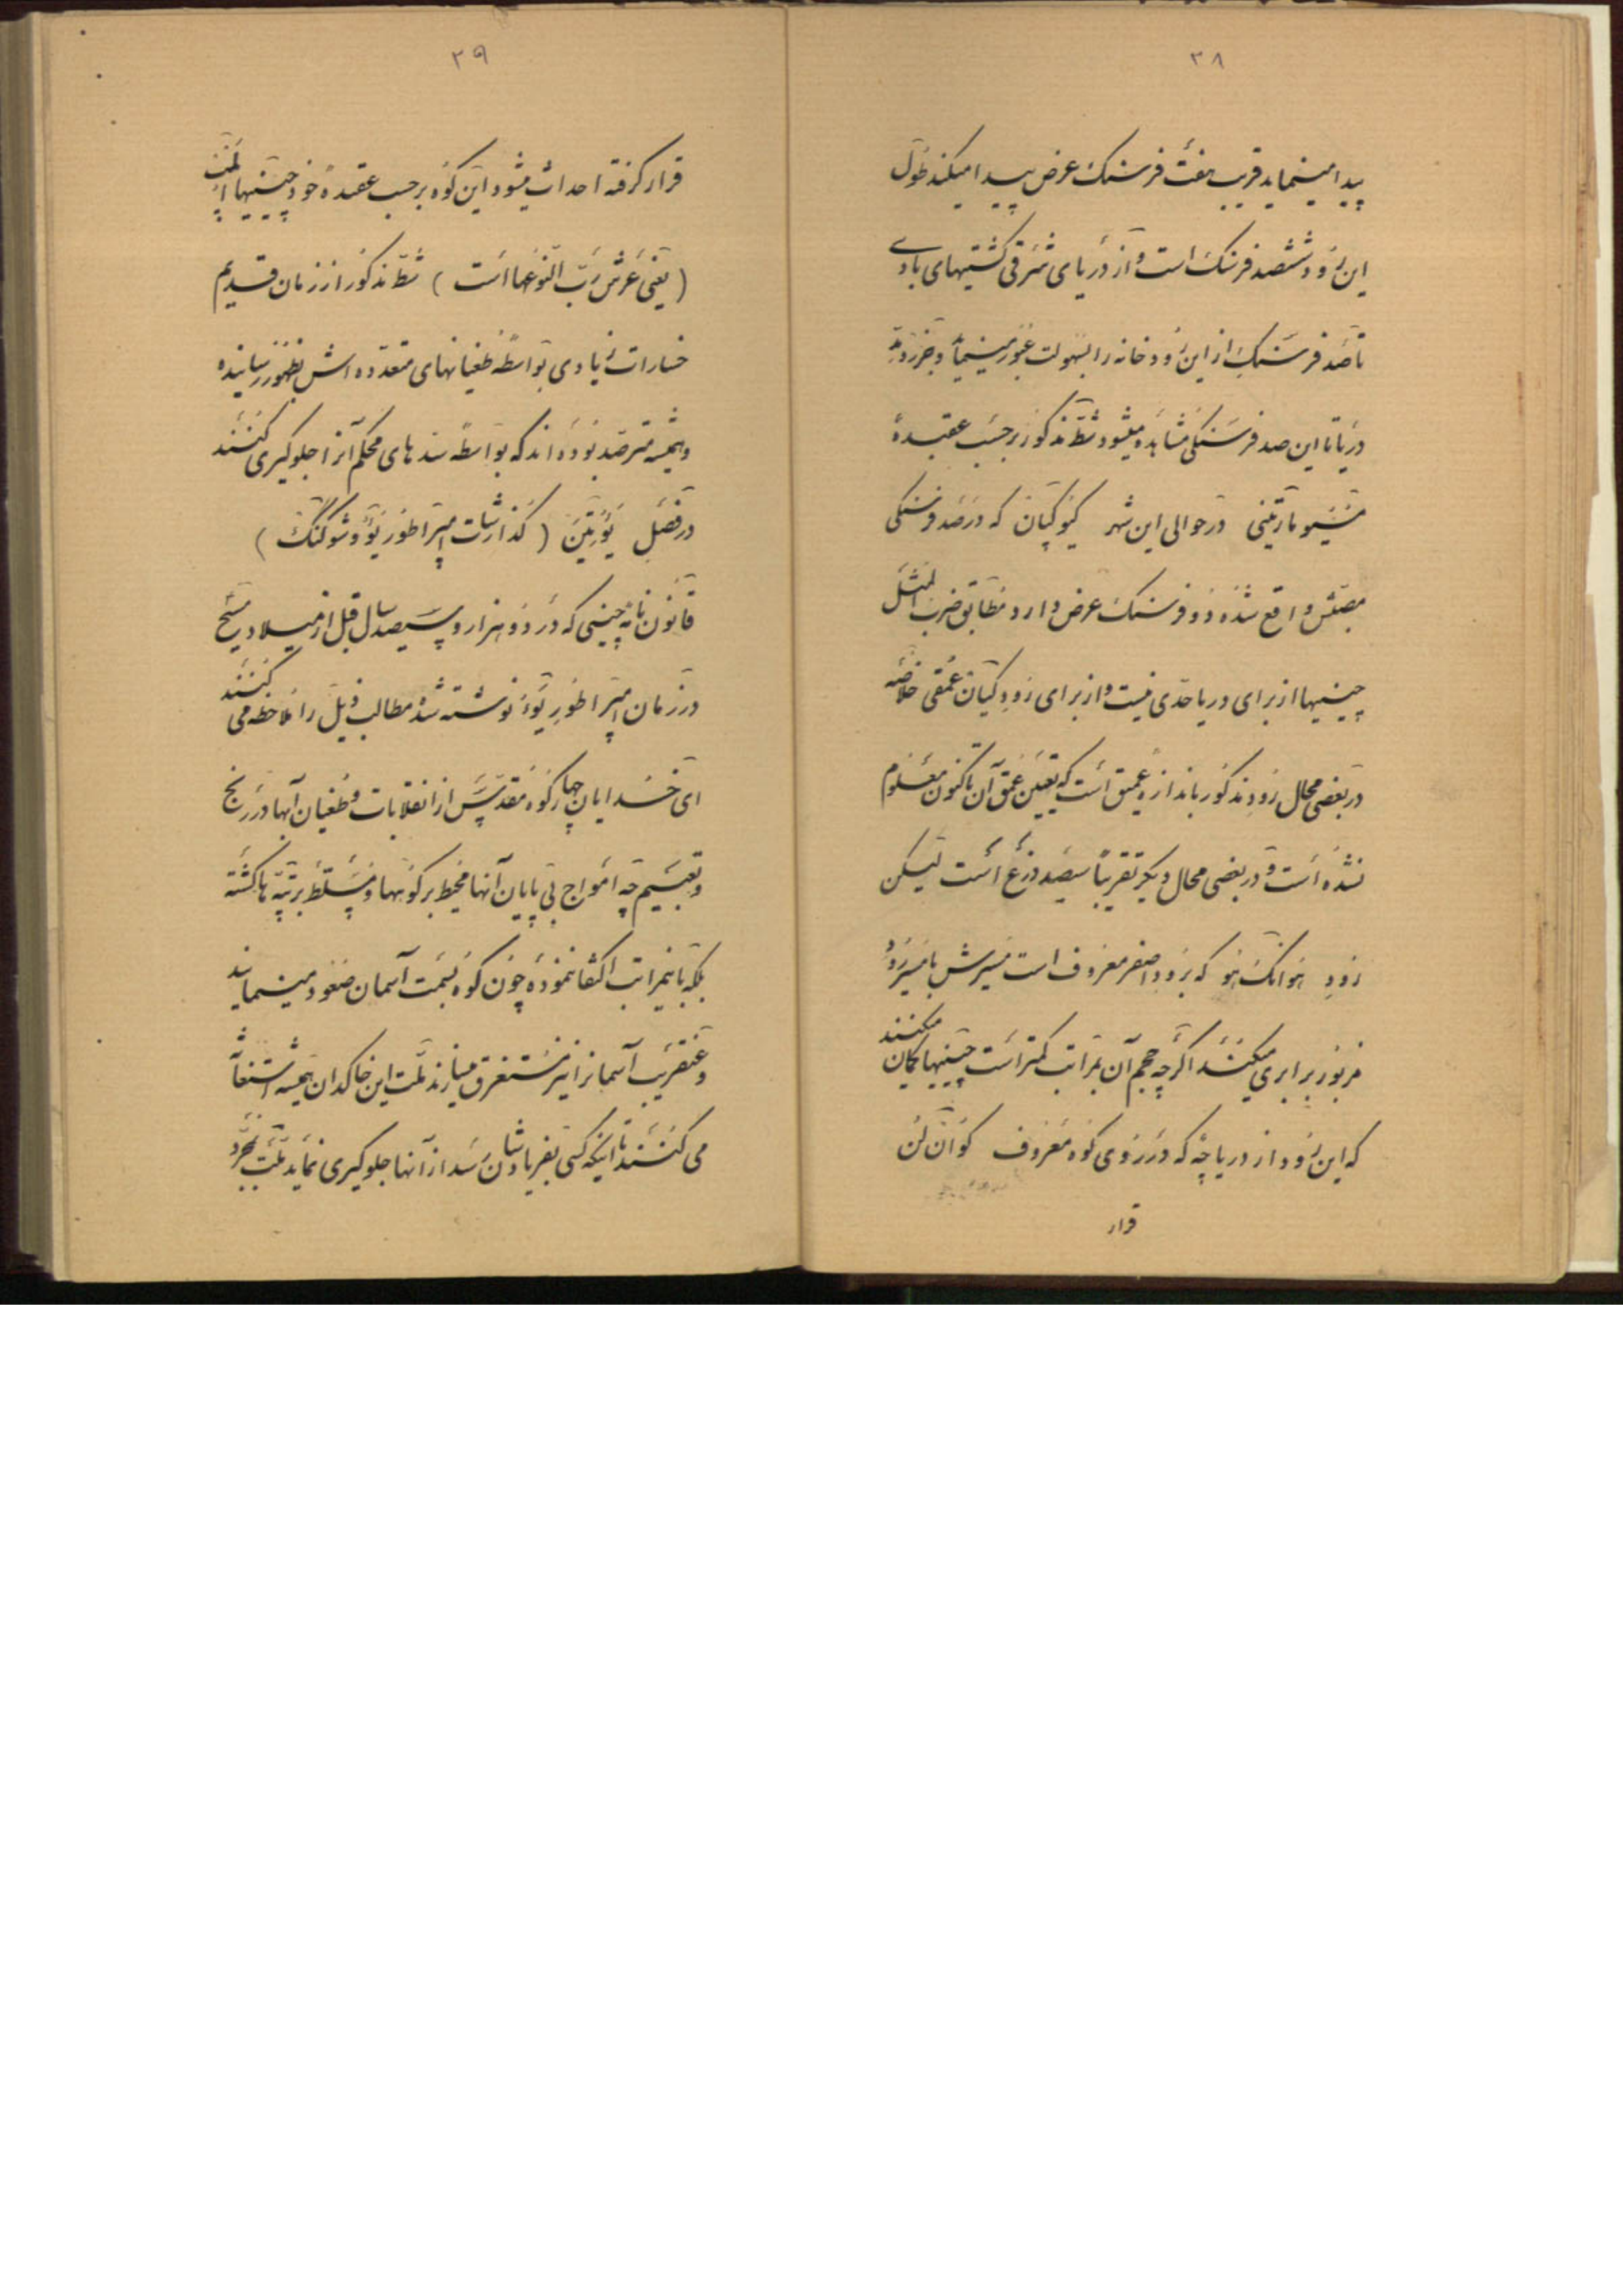 ۳۸
پیدا مینماید قریب هفت فرسنک عرض پیدا میکند طول
این رود ششصد فرسنک است و از دریای شرقی کشتیهای بادی
تا صد فرسنک از این رودخانه را بسهولت عبور مینماید و جزر و مدّ
دریا تا این صد فرسنکی مشاهده میشود شطّ مذکور بر حسب عقیدهٔ
مسیو مارتینی در حوالی این شهر کیوکیان که در صد فرسنکی
مصبّش واقع شده دو فرسنک عرض دارد مطابق ضرب المثل
چینیها از برای دریا حدّی نیست و از برای رود کیان عمقی خلاصه
در بعضی محال رود مذکور باندازهٔ عمیق است که تعیین عمق آن تاکنون معلوم
نشده است و در بعضی محال دیکر تقریباً سیصد ذرع است لیکن
رود هوانک هو که برود اصفر معروف است مسیرش با مسیر رود
مزبور برابری میکند اکرچه حجم آن بمراتب کمتر است چینیها کمان میکنند
که این رود از دریاچهٔ که در روی کوه معروف کوان لن
قرار
۳۹
قرار کرفته احداث میشود این کوه بر حسب عقیدهٔ خود چینیها
(یعنی عرش ربّ النوعها است) شطّ مذکور از زمان قدیم
خسارات زیادی بواسطهٔ طغیانهای متعدّده اش بظهور رسانیده
و همیشه مترصّد بوده اند که بواسطهٔ سدهای محکم آنرا جلوکیری کنند
در فصل یوتین (کذارشات امپراطور یوُ و شوکنک)
قانون نامهٔ چینی که در دو هزار و سیصد سال قبل از میلاد مسیح
در زمان امپراطور یوُ نوشته شد مطالب ذیل را ملاحظه می کنند
ای خدایان چهار کوه مقدّس از انقلابات و طغیان آبها در رنج
و تعبیم چه امواج بی پایان آنها محیط بر کوهها و مسلّط بر تپّه ها کشته
بلکه باینمراتب اکتفا نموده چون کوه بسمت آسمان صعود مینمایند
و عنقریب آسمانرا نیز مستغرق میسازند ملّت این خاکدان همیشه استغاثه
می کنند تا اینکه کسی بفریادشان رسد از آنها جلوکیری نماید ملّت بمجرّد